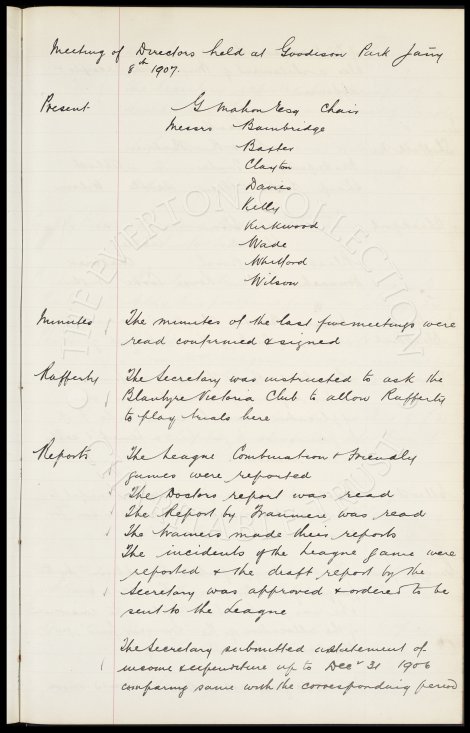 Meeting of Directors held at Goodison Park Jany
8th 1907.
Present G Mahon Esq Chair
Messrs Bainbridge
Baxter
Clayton
Davies
Kelly
Kirkwood
Wade
Whitford
Wilson
Minutes The minutes of the last five meetings were
read confirmed & signed
Rafferty The Secretary was instructed to ask the
Blantyre Victoria Club to allow Rafferty
to play trials here
Reports The League Combination & Friendly
games were reported
The Doctors report was read
The Report by was read
The trainers made their reports
The incidents of the League game were
reported & the draft report by the
Secretary was approved & ordered to be
sent to the League
The Secretary submitted a statement of
income & expenditure up to Decr 31 1906
comparing same with the corresponding period
THE EVERTON COLLECTION